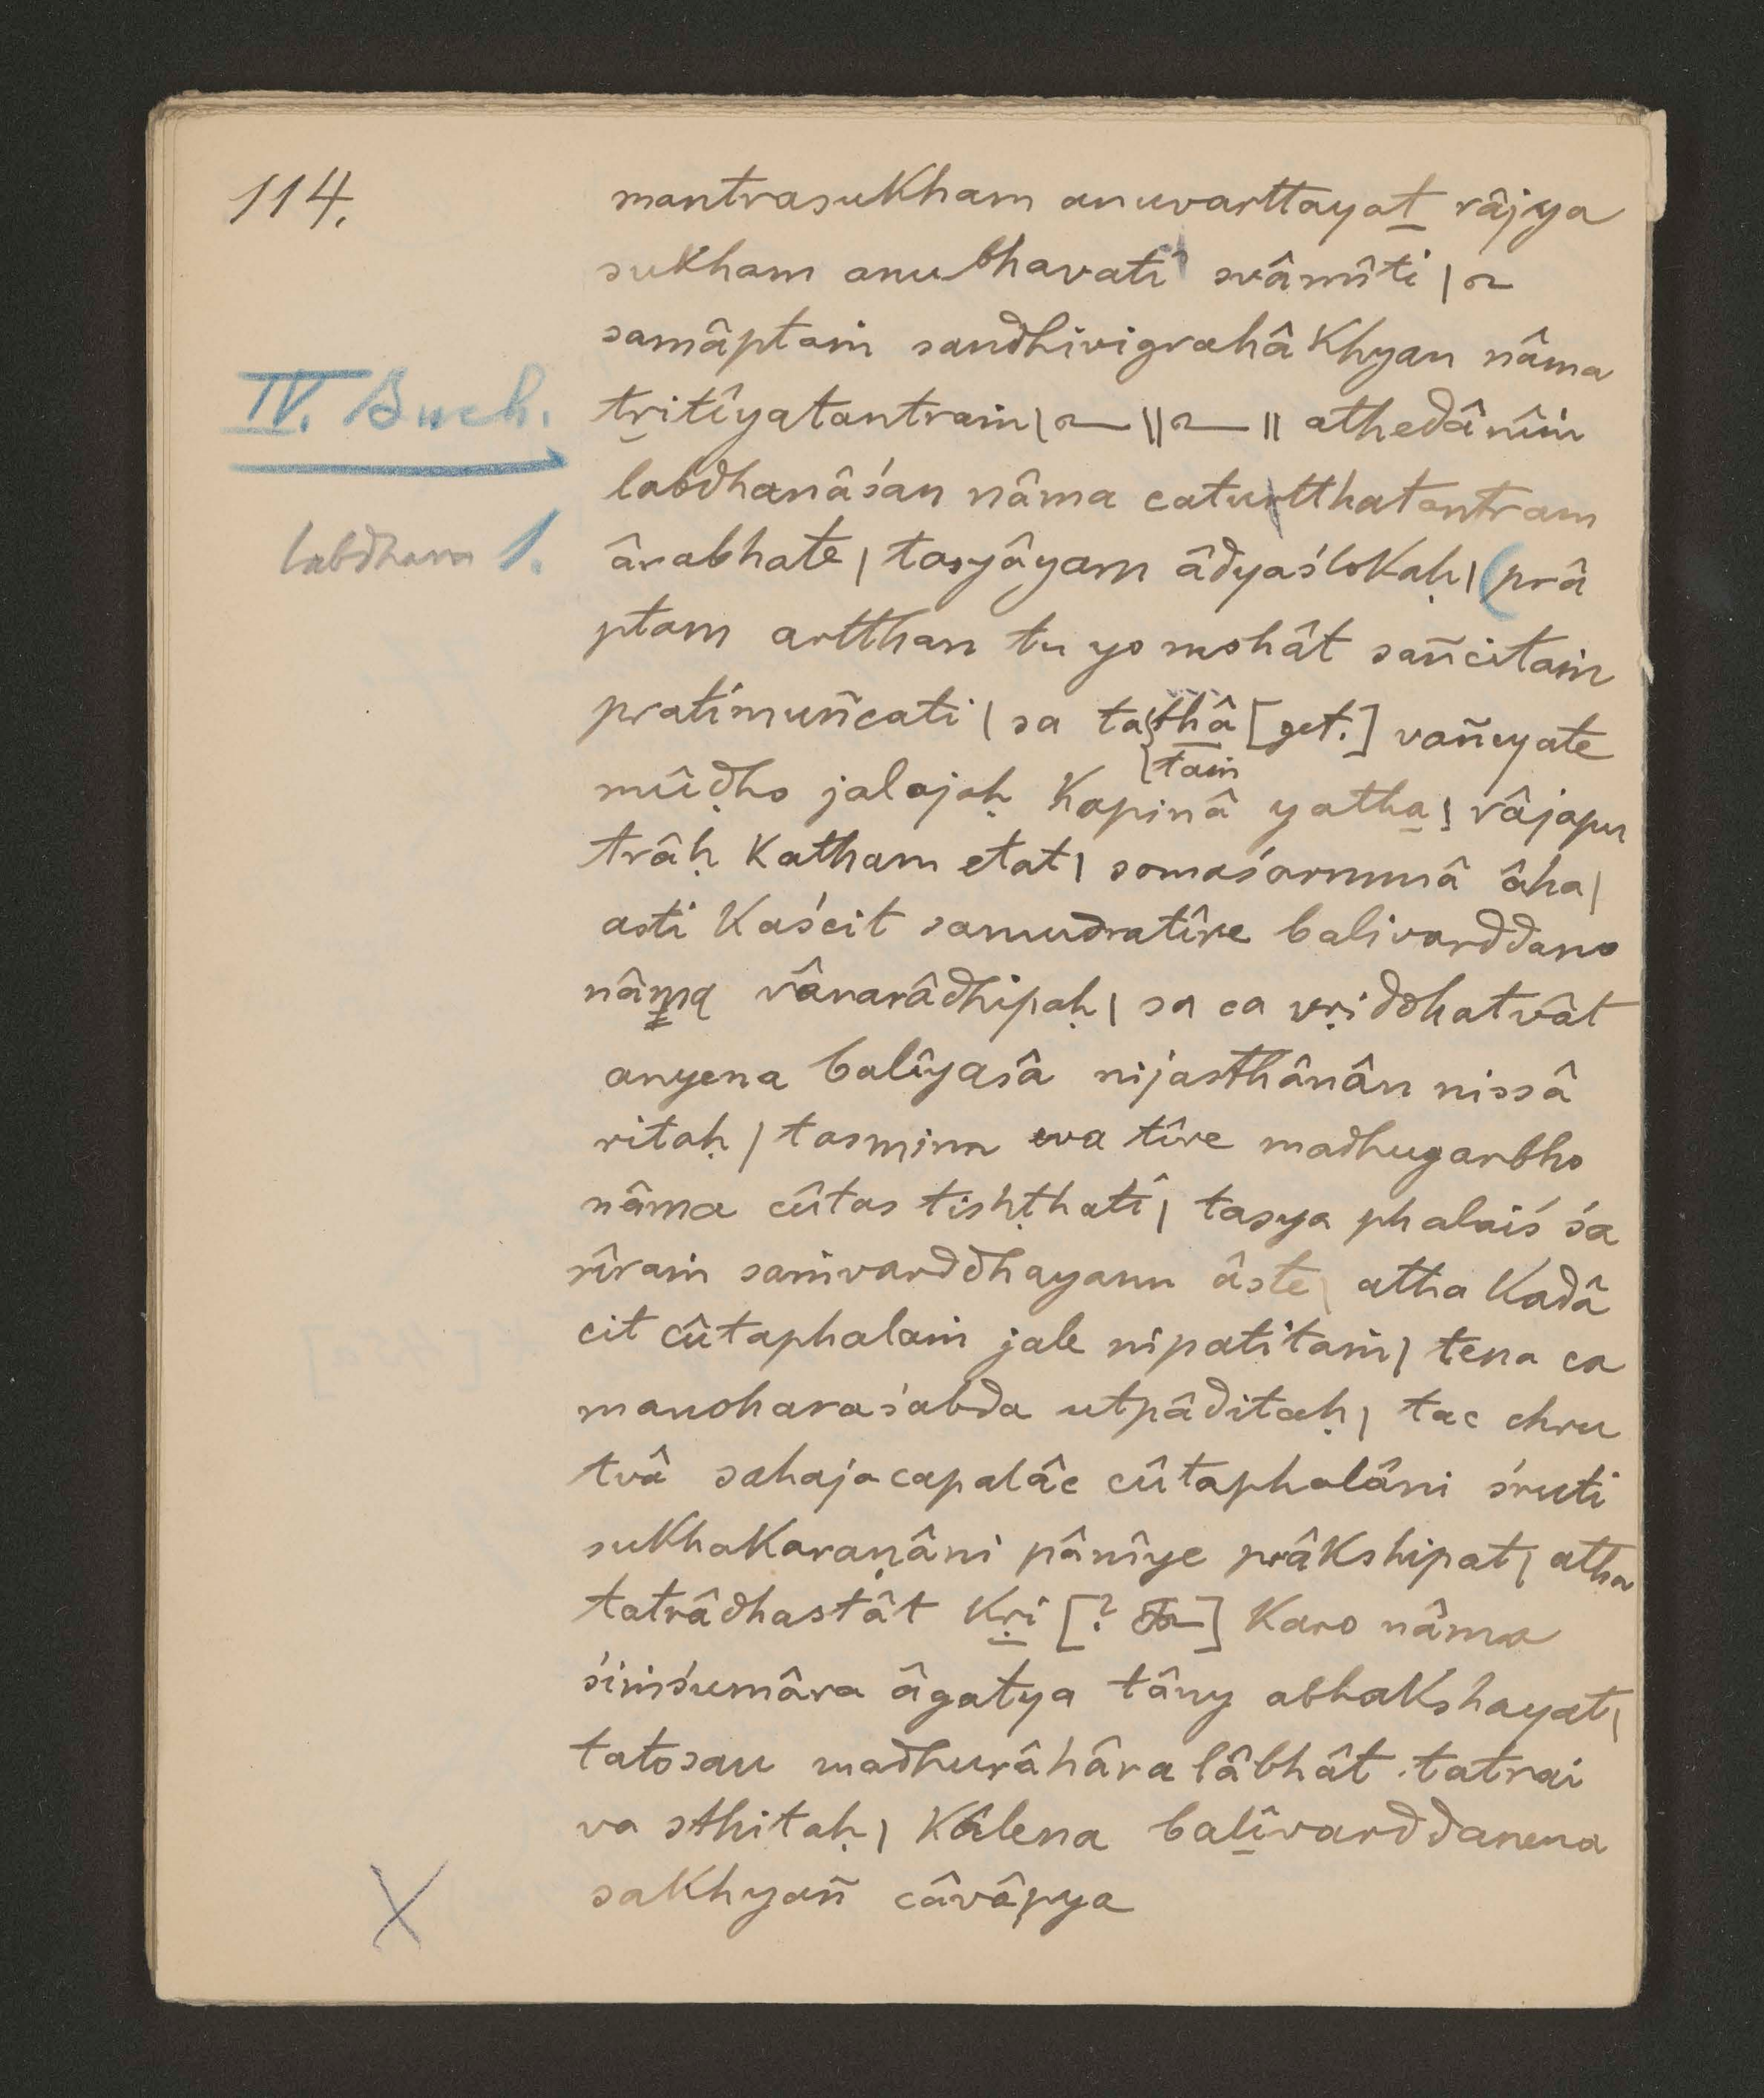 114.
mantrasukham anuvarttayat râjya
sukham anubhavati svâmîti | ~
samâptaṁ sandhivigrahâkhyan nâma
IV. Buch.
tṛitîyatantraṁ | ~ || ~ || athedânîṁ
labdhanâśan nâma caturtthatantram
labdhan 1.
ârabhate | tasyâyam âdyaślokaḥ | (prâ
ptam artthan tu yo mohât sañcitaṁ
pratimuñcati | sa tathâ [get.] vañcyate
taṁ
mûḍho jalajaḥ kapinâ yatha | râjapu
trâḥ katham etat | somaśarmmâ âha |
asti kaścit samudratîre balivarddano
nâma vânarâdhipaḥ | sa ca vṛiddhatvât
anyena balîyasâ nijasthânân nissâ
ritaḥ | tasminn eva tîre madhugarbho
nâma cûtas tishṭhati | tasya phalaiś śa
rîraṁ saṁvarddhayann âste | atha kadâ
cit cûtaphalaṁ jale nipatitaṁ | tena ca
manoharaśabda utpâditaḥ | tac chru
tvâ sahajacapalâc cûtaphalâni śruti
sukhakaraṇâni pânîye prâkshipat | atha
tatrâdhastât kṛi [? ] karo nâma
śiṁśumâra âgatya tâny abhakshayat |
tatosau madhurâhâra lâbhât tatrai
va sthitaḥ | kâlena balîvarddanena
sakhyañ câvâpya
X